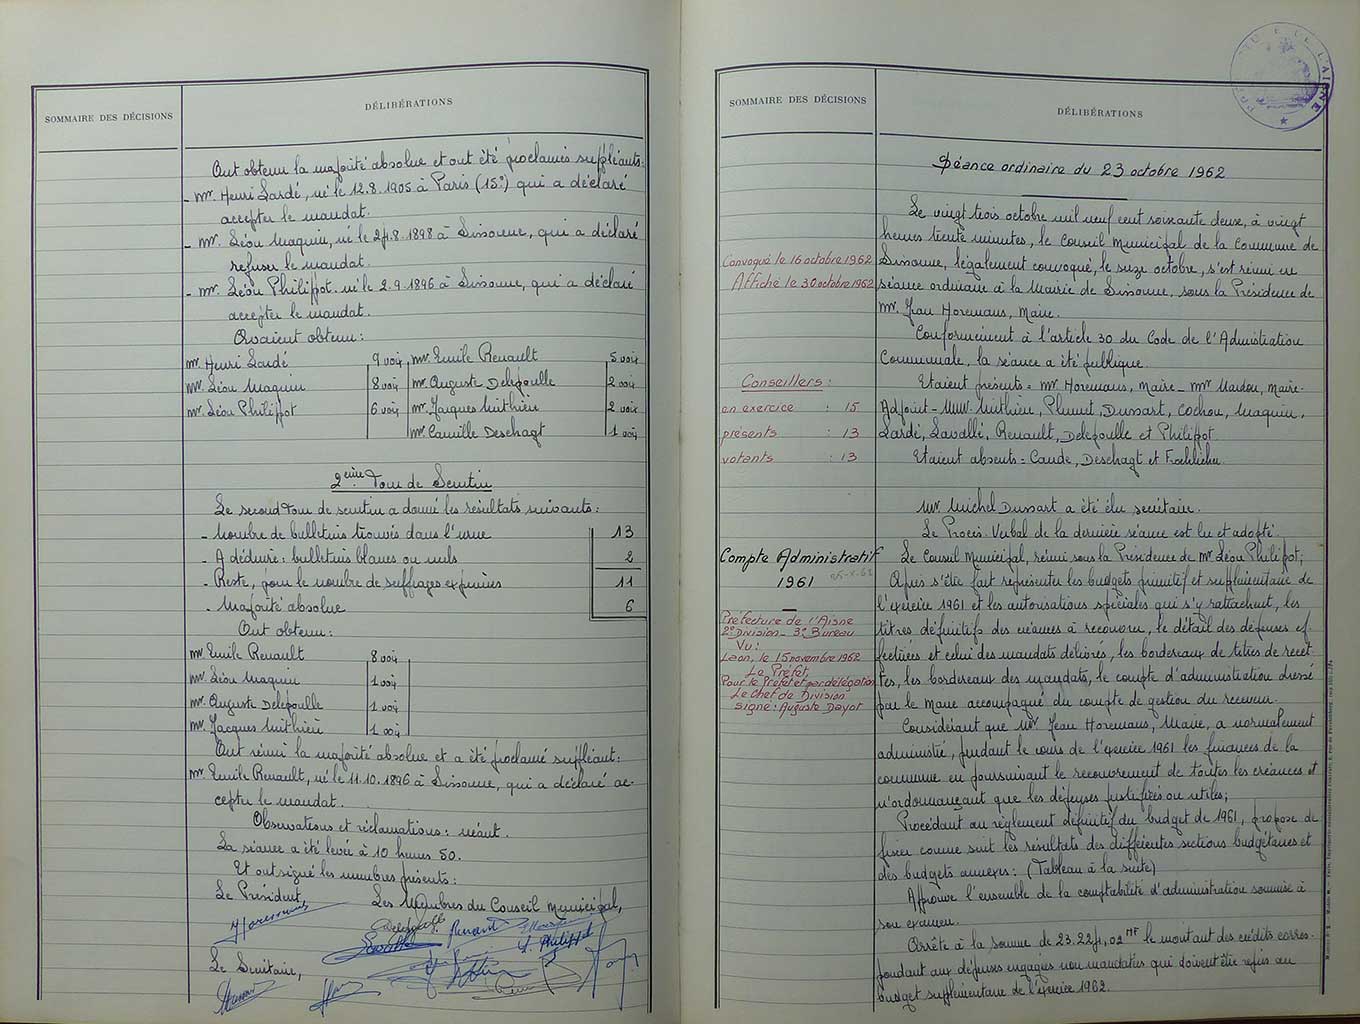 SOMMAIRE DES DÉCISIONS
DÉLIBÉRATIONS
Ont obtenu la majorité absolue et ont été proclamés suppléants:
- Mr. Henri Lardé, né le 12.8.1905 à Paris (15°) qui a déclaré
accepter le mandat.
- Mr. Léon Maquin, né le 24.8.1898 à Sissonne, qui a déclaré
refuser le mandat.
- Mr. Léon Philippot. né le 2.9.1896 à Sissonne, qui a déclaré
accepter le mandat.
Avaient obtenu:
Mr. Henri Lardé 9 voix Mr. Emile Renault 5 voix
Mr. Léon Maquin 8 voix Mr. Auguste Delepoulle 2 voix
Mr. Léon Philippot 6 voix Mr. Jacques Mithieu 2 voix
Mr. Camille Deschagt 1 voix
2ème Tour de Scrutin
Le second Tour de scrutin a donné les résultats suivants:
- Nombre de bulletins trouvés dans l'urne 13
- A déduire: bulletins blancs ou nuls 2
- Reste, pour le nombre de suffrages exprimés 11
- Majorité absolue 6
Ont obtenu:
Mr. Emile Renault 8 voix
Mr. Léon Maquin 1 voix
Mr. Auguste Delepoulle 1 voix
Mr. Jacques Mithieu 1 voix
Ont réuni la majorité absolue et a été proclamé suppléant:
Mr. Emile Renault, né le 11.10.1896 à Sissonne, qui a déclaré ac-
cepter le mandat.
Observations et réclamations: néant.
La séance a été levée à 10 heures 50.
Et ont signé les membres présents:
Le Président, Les Membres du Conseil Municipal,
Delepoulle Renault
L. Philippot
Le Secrétaire,
SOMMAIRE DES DÉCISIONS
DÉLIBÉRATIONS
DE L'AISNE
Séance ordinaire du 23 octobre 1962
Le vingt trois octobre mil neuf cent soixante deux, à vingt
heures trente minutes, le Conseil Municipal de la Commune de
Convoqué le 16 octobre 1962
Sissonne, légalement convoqué, le seize octobre, s'est réuni en
Affiché le 30 octobre 1962
séance ordinaire à la Mairie de Sissonne, sous la Présidence de
Mr. Jean Horemans, Maire.
Conformément à l'article 30 du Code de l'Admistration
Communale, la séance a été publique.
Conseillers:
Etaient présents = Mr. Horemans, Maire - Mr. Mardon, Maire-
en exercice : 15
Adjoint - MM. Mithieu, Plumet, Dussart, Cochou, Maquin,
présents : 13
Lardé, Lavallé, Renault, Delepoulle et Philippot.
votants : 13
Etaient absents = Caude, Deschagt et Froehlicher.
Mr. Michel Dussart a été élu secrétaire.
Le Procès-Verbal de la dernière séance est lu et adopté.
Compte Administratif
1961
Le Conseil Municipal, réuni sous la Présidence de Mr. Léon Philippot;
Après s'être fait représenter les budgets primitif et supplémentaire de
l'exercice 1961 et les autorisations spéciales qui s'y rattachent, les
Préfecture de l'Aisne
2° Division - 3° Bureau
Vu:
Laon, le 15 novembre 1962
Le Préfet,
Pour le Préfet et par délégation
Le Chef de Division
signé: Auguste Dayot
titres définitifs des créances à recouvrer, le détail des dépenses ef
fectuées et celui des mandats délivrés, les bordereaux de titres de recet
tes, les bordereaux des mandats, le compte d'administration dressé
par le Maire accompagné du compte de gestion du receveur.
Considérant que Mr. Jean Horemans, Maire, a normalement
administré, pendant le cours de l'exercice 1961 les finances de la
commune en poursuivant le recouvrement de toutes les créances et
n'ordonnançant que les dépenses justifiées ou utiles;
Procédant au règlement définitif du budget de 1961, propose de
fixer comme suit les résultats des différentes sections budgétaires et
des budgets annexes: (Tableau à la suite)
Approuve l'ensemble de la comptabilité d'administration soumise à
son examen.
Arrête à la somme de 23.224,02 NF le montant des crédits corres-
pondant aux dépenses engagées non mandatées qui doivent être repris au
budget supplémentaire de l'exercice 1962.